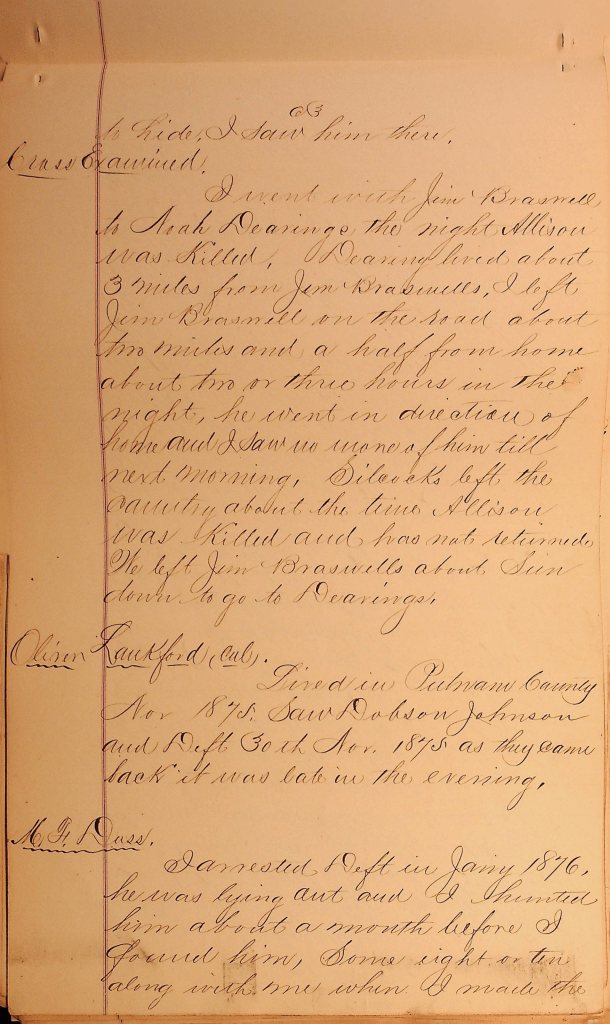 63
to hide, I saw him there.
Cross Examined.
I went with Jim Braswell
to Noah Dearings the night Allison
was Killed. Dearing lived about
3 miles from Jim Braswells, I left
Jim Braswell on the road about
two miles and a half from home
about two or three hours in the
night, he went in direction of
home and I saw no more of him till
next morning. Silcocks left the
country about the time Allison
was Killed and has not returned
We left Jim Braswells about Sun
down to go to Dearings.
Oliver Lankford, (col).
Lived in Putnam County
Nov 1875. Saw Dobson Johnson
and Deft 30th Nov. 1875 as they came
back it was late in the evening.
M. F. Doss.
I arrested Deft in Jany 1876.
he was lying out and I hunted
him about a month before I
found him, Some eight or ten
along with me when I made the